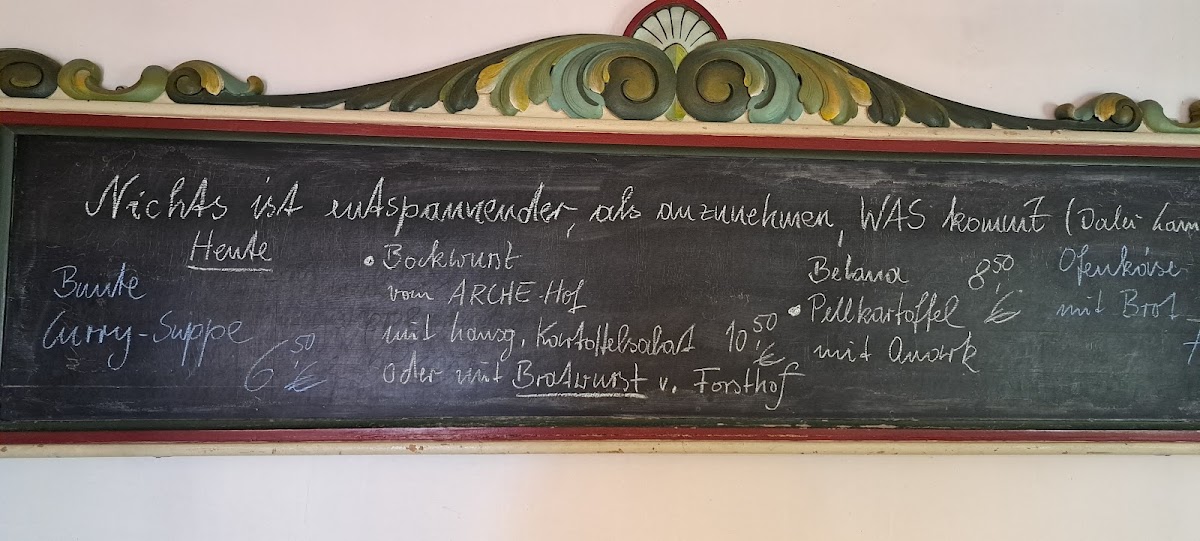 Nichts ist entspannender, als anzunehmen, WAS kommt (Dalai Lam
Heute
Bunte
Curry-Suppe
6,50 €
• Bockwurst
vom ARCHE-Hof
mit hausg. Kartoffelsalat 10,50 €
oder mit Bratwurst v. Forsthof
Belana
• Pellkartoffel
mit Quark
8,50 €
Ofenkäse
mit Brot